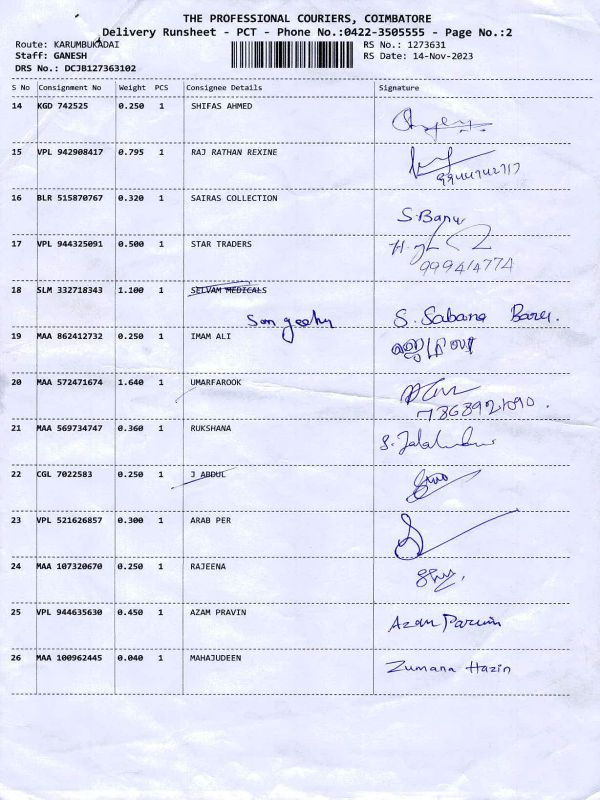 THE PROFESSIONAL COURIERS, COIMBATORE
Delivery Runsheet - PCT - Phone No.:0422-3505555 - Page No.:2
Route: KARUMBUKADAI RS No.: 1273631
Staff: GANESH RS Date: 14-Nov-2023
DRS No.: DCJB127363102
S No Consignment No Weight PCS Consignee Details Signature
14 KGD 742525 0.250 1 SHIFAS AHMED
15 VPL 942908417 0.795 1 RAJ RATHAN REXINE
16 BLR 515870767 0.320 1 SAIRAS COLLECTION
S. Banu
17 VPL 944325091 0.500 1 STAR TRADERS
999414774
18 SLM 332718343 1.100 1 SELVAM MEDICALS
S. Sabana
19 MAA 862412732 0.250 1 IMAM ALI
20 MAA 572471674 1.640 1 UMARFAROOK
7868921090.
21 MAA 569734747 0.360 1 RUKSHANA
22 CGL 7022583 0.250 1 J ABDUL
23 VPL 521626857 0.300 1 ARAB PER
24 MAA 107320670 0.250 1 RAJEENA
25 VPL 944635630 0.450 1 AZAM PRAVIN
Azam Parvin
26 MAA 100962445 0.040 1 MAHAJUDEEN
Zumana Hazin